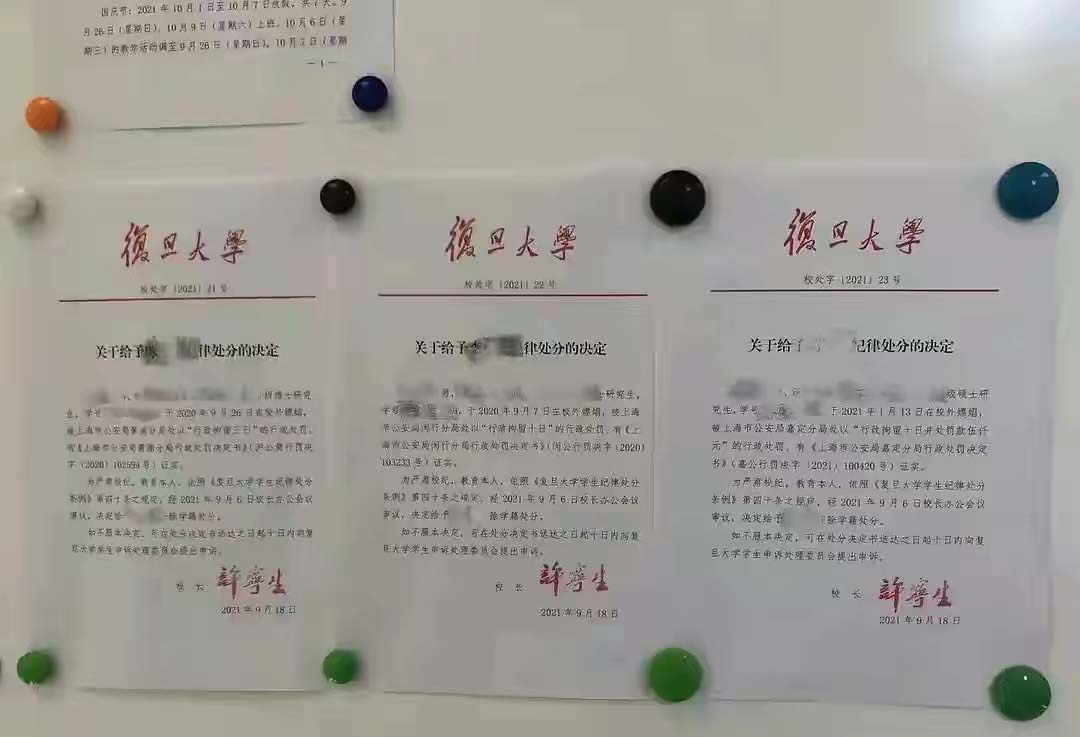 国庆节：2021年10月1日至10月7日放假，共7天。9
月26日（星期日）、10月9日（星期六）上班，10月6日（星
期三）的教学活动调至9月26日（星期日），10月7日（星期
— 1 —
復旦大學
校处字〔2021〕21号
关于给予 律处分的决定
级博士研究
生，学号 于2020年9月26日在校外嫖娼，
被上海市公安局黄浦分局处以“行政拘留三日”的行政处罚，
有《上海市公安局黄浦分局行政处罚决定书》（沪公黄行罚决
字〔2020〕102599号）证实。
为严肃校纪，教育本人，依照《复旦大学学生纪律处分
条例》第四十条之规定，经2021年9月6日校长办公会议
审议，决定给 除学籍处分。
如不服本决定，可在处分决定书送达之日起十日内向复
旦大学学生申诉处理委员会提出申诉。
校 长 許寧生
2021年9月18日
復旦大學
校处字〔2021〕22号
关于给予李 律处分的决定
男， 士研究生，
学号 ，于2020年9月7日在校外嫖娼，被上海
市公安局闵行分局处以“行政拘留十日”的行政处罚，有《上
海市公安局闵行分局行政处罚决定书》（闵公行罚决字〔2020〕
103233号）证实。
为严肃校纪，教育本人，依照《复旦大学学生纪律处分
条例》第四十条之规定，经2021年9月6日校长办公会议
审议，决定给予 除学籍处分。
如不服本决定，可在处分决定书送达之日起十日内向复
旦大学学生申诉处理委员会提出申诉。
校 长 許寧生
2021年9月18日
復旦大學
校处字〔2021〕23号
关于给 纪律处分的决定
级硕士研
究生，学号 于2021年1月13日在校外嫖娼，
被上海市公安局嘉定分局处以“行政拘留十日并处罚款伍仟
元”的行政处罚，有《上海市公安局嘉定分局行政处罚决定
书》（嘉公行罚决字〔2021〕100420号）证实。
为严肃校纪，教育本人，依照《复旦大学学生纪律处分
条例》第四十条之规定，经2021年9月6日校长办公会议
审议，决定给予 除学籍处分。
如不服本决定，可在处分决定书送达之日起十日内向复
旦大学学生申诉处理委员会提出申诉。
校 长 許寧生
2021年9月18日